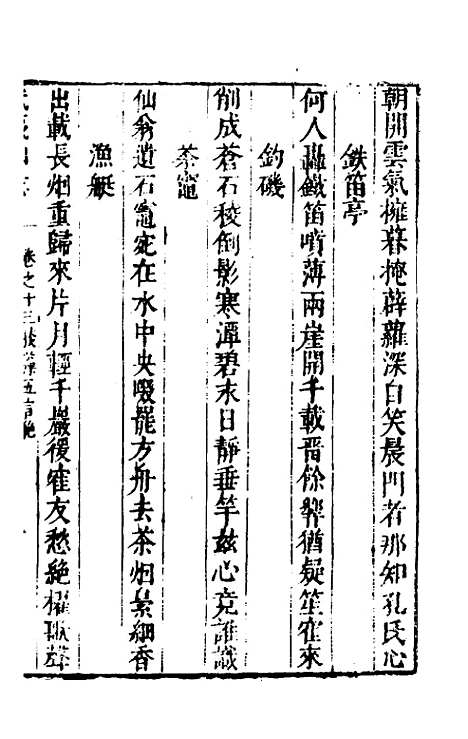 朝開雲氣擁暮掩薜蘿深自笑晨門者那知孔氏心
鉄笛亭
何人轟鐵笛噴薄兩崖開千載晋餘響猶疑笙宿來
釣磯
削成蒼石稜倒影寒潭碧末日静垂竿兹心竟誰識
茶竈
仙翁遺石竈宛在水中央啜罷方舟去茶烟裊細香
漁艇
出載長烟重歸來片月輕千巖後寉友愁絶櫂歌聲
卷之十三 五言絶